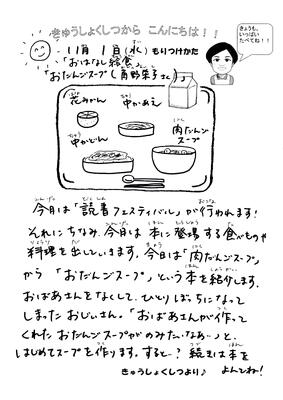 きゅうしょくしつから こんにちは!!
きょうも、
いっぱい
たべてね!!
11月 1日(水) もりつけかた
「おはなし給食」
「おだんごスープ(角野栄子さん)」
花みかん
中かあえ
肉だんご
スープ
中かどん
今日は「読書フェスティバル」が行われます!
それにちなみ、今日は本に登場する食べものや
料理を出していきます。今日は「肉だんごスープ」
から「おだんごスープ」という本を紹介します。
おばあさんをなくして、ひとりぼっちになって
しまったおじいさん。「おばあさんが作って
くれたおだんごスープがのみたいなあ…」と、
はじめてスープを作ります。すると…?続きは本を
よんでね!
きゅうしょくしつより♪